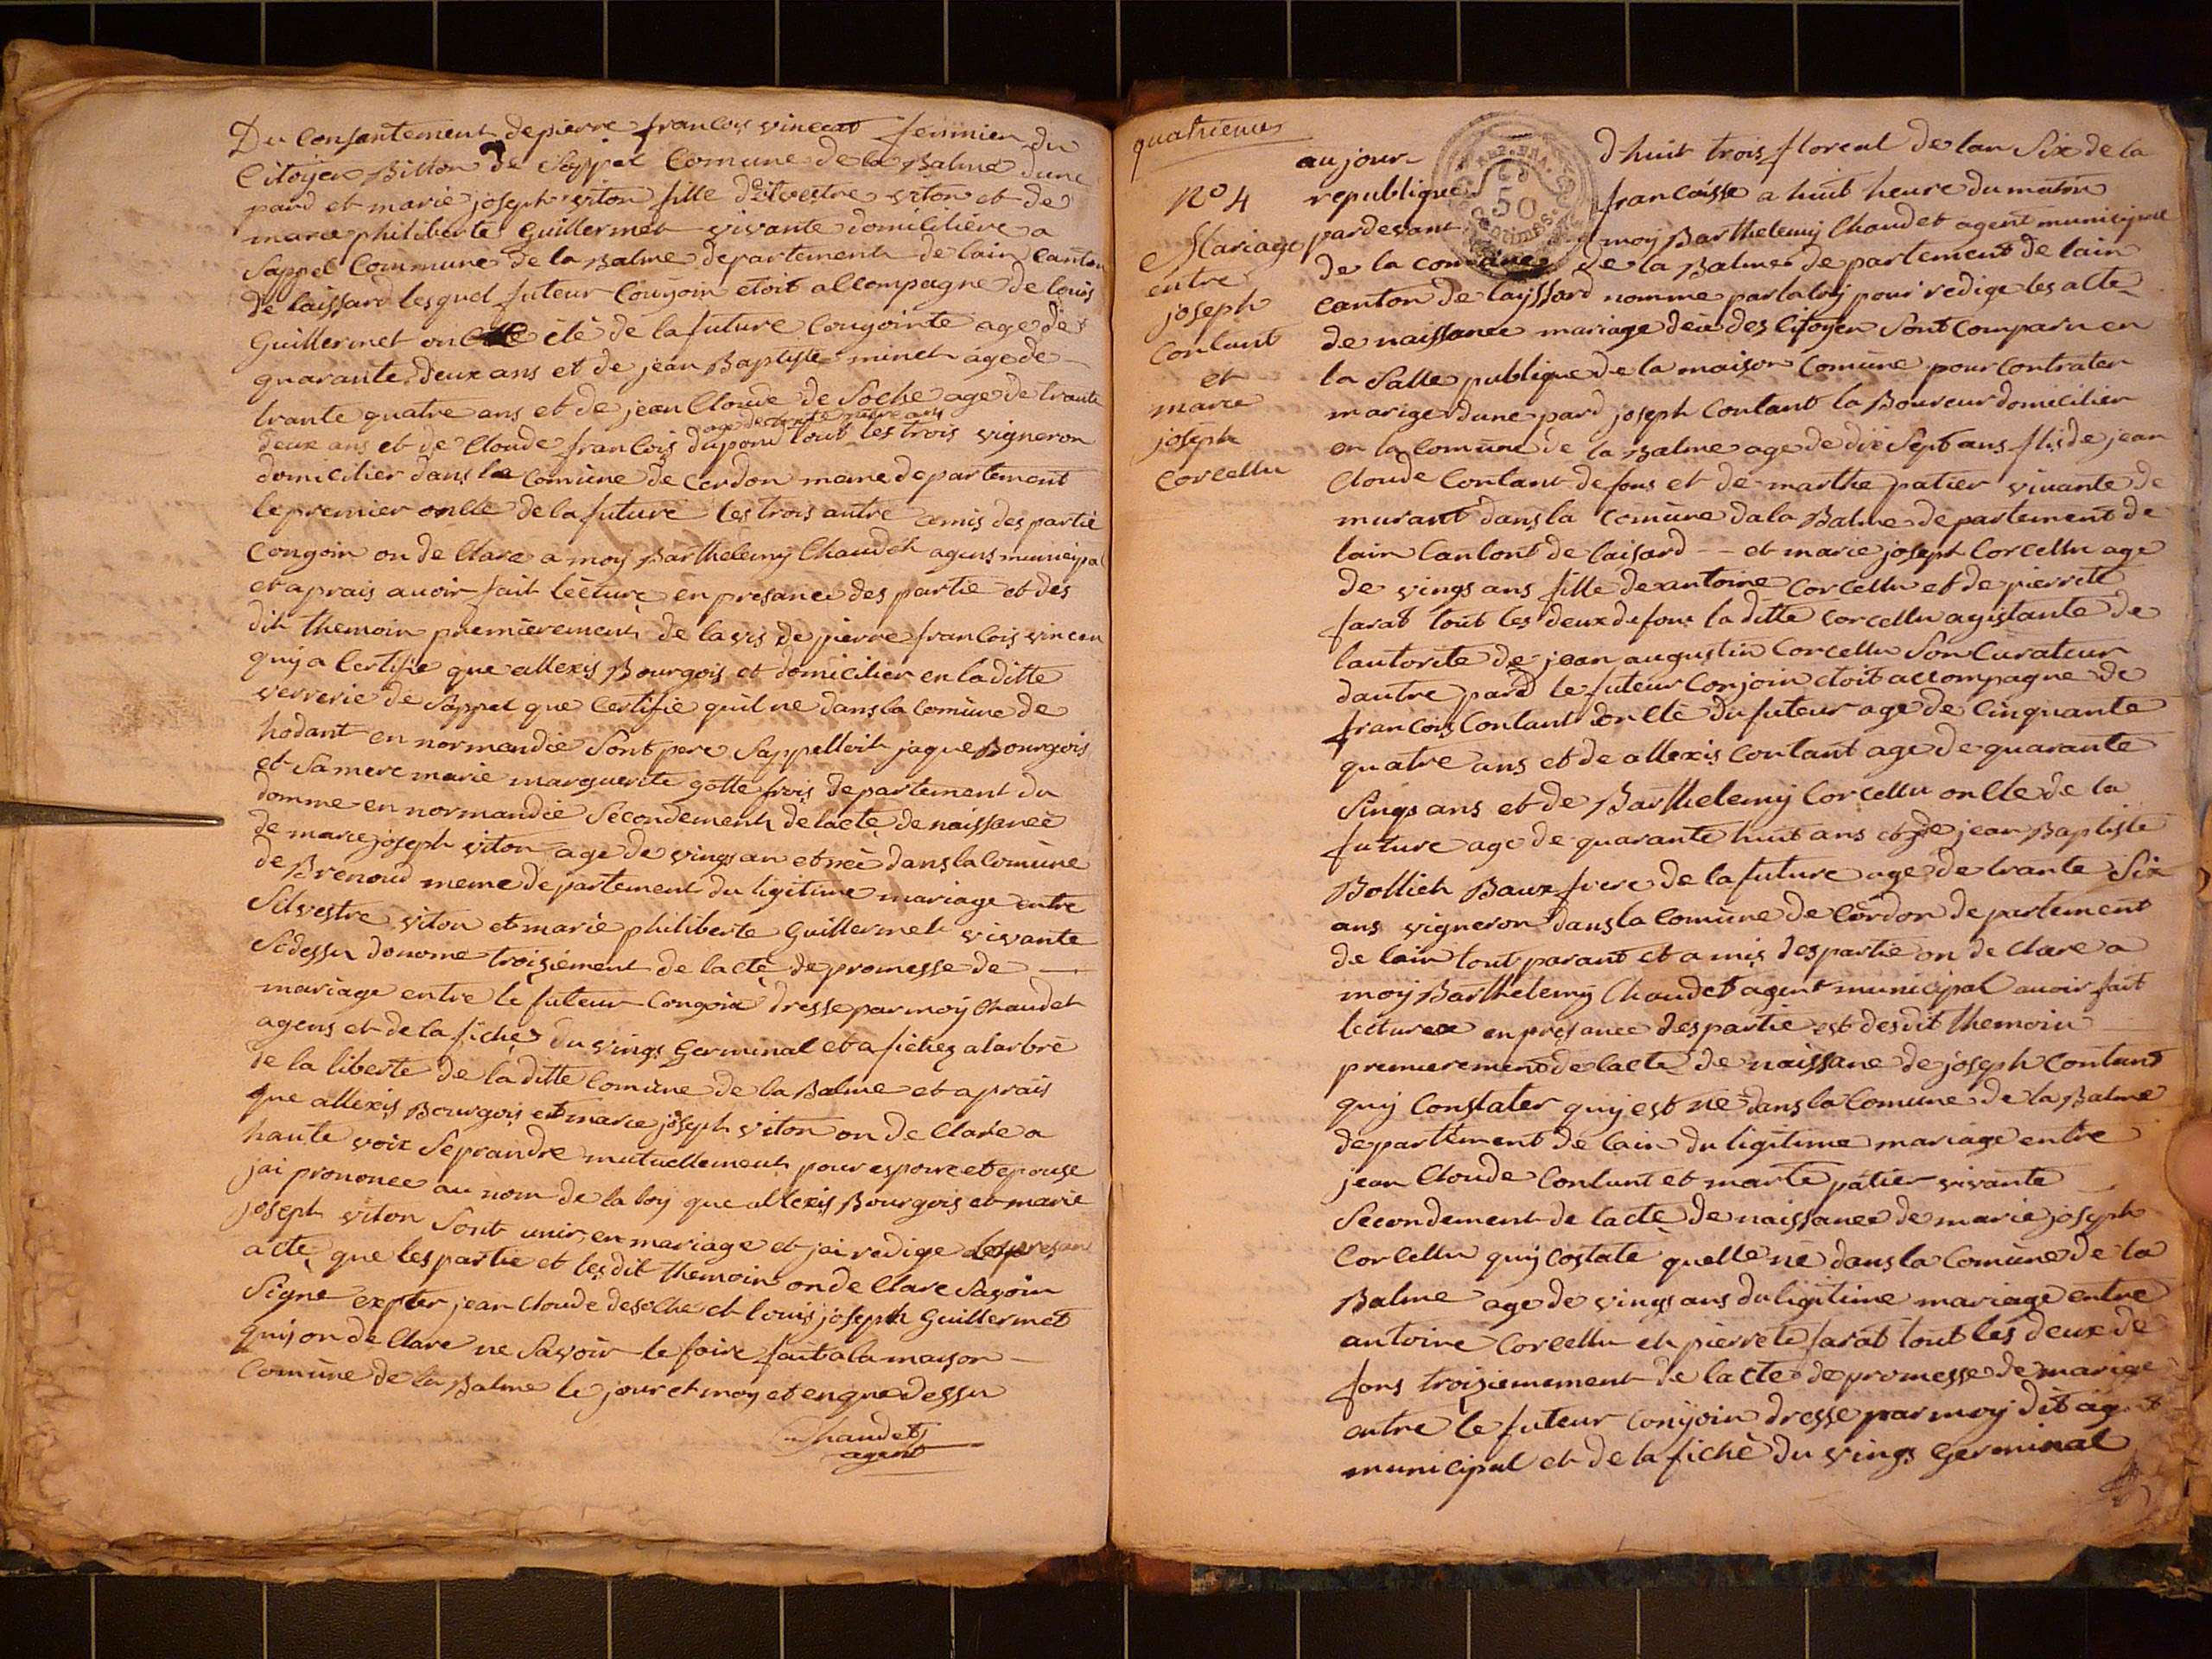 Du Consentement de pierre francois vincent fermier du
Citoyen Billon de Sappel Comune de la Balme dune
pard et marie joseph viton fille de Silvestre viton et de
marie philiberte Guillermet vivante domicilière a
Sappel Commune de la Balme departement de lain Canton
de laissard lesquel futeur Conjoin etoit allcompagne de louis
Guillermet oncle été de la future Conjointe age de
quarante deux ans et de jean Baptiste minet age de
trante quatre ans et de jean Cloude de Soche age de trante
age de trente neuve ans
deux ans et de Cloude francois dupont tout les trois vigneron
domicilier dans la Comùne de Cerdon meme departement
le premier onlle de la future les trois autre amis des partie
Congoin on de Clare a moy Barthelemy Chaudet agens municipa
et aprais auoir fait lecture en presance des partie et des
dit themoin premièrement de lavis de pierre francois vincen
quy a Certifie que allexis Bourgois et domicilier en la ditte
verrerie de Sappel que Certifie quil ne dans la Comùne de
hodant en normandie Sont pere Sappelloit jaque Bourgois
et Sa mere marie marguerite gotte frois departement du
domme en normandie Secondement de lacte de naissance
de marie joseph viton age de vings an et neè dans la Comùne
de Brenoud meme departement du ligitime mariage entre
Silvestre viton et marie philiberte Guillermet vivante
Sedessu donome troisiement de lacte de promesse de
mariage entre le futeur Congoin dresse par moy Chaudet
agens et de la fiche du vings Germinal et a fichez a larbre
de la liberte de la ditte Comùne de la Balme et aprais
que allexis Bourgois et marie joseph viton on de Clare a
haute voix Se prandre mutuellement pour espoux et epouse
jai prononce au nom de la loy que allexis Bourgois et marie
joseph viton Sont unir en mariage et jai redige le presan
acte que les partie et les dit themoin on de Clare Savoir
Signe expter jean Cloude desoche et louis joseph Guillermet
quy on de Clare ne Savoir le faire fait a la maison
Comùne de la Balme le jour et moy et en que dessu
Chaudet
agent
quatriemes
N° 4
Mariage
entre
joseph
Contant
et
marie
joseph
Corcellu
au jour d huit trois floreal de lan Six de la
republique francoisse a huit heure du matin
par devant moy Barthelemy Chaudet agent municipal
de la comune de la Balme departement de lain
canton de layssard nomme par la loy pour redige les acte
de naissance mariage deie des Citoyen Sont Comparu en
la Salle publique de la maison Comùne pour Contrater
marige dune pard joseph Contant la Boureur domicilier
en la Comùne de la Balme age de dix Sept ans fils de jean
Cloude Contant defons et de marthe patier vivante de
murant dans la Comùne dala Balme departement de
lain Cantont de laisard -- et marie joseph Corcellu age
de vings ans fille de antoine Corcellu et de pierrete
farat tout les deux defons la ditte Corcellu agistante de
lautorite de jean augustin Corcellu Son Curateur
dautre pard le futeur Conjoin etoit accompagne de
francois Contant onclé du futeur age de Cinquante
quatre ans et de allexis Contant age de quarante
Sings ans et de Barthelemy Corcellu onlle de la
future age de quarante huit ans et de jean Baptiste
Bollieh Baux frere de la future age de trante Six
ans vigneron dans la Comùne de Cerdon departement
de lain tout parant et a mis des partie on de Clare a
moy Barthelemy Chaudet agent municipal auoir fait
lecture en presance des partie est des dit themoin
premierement de lacte de naissane de joseph Contant
quy Constater quy est ne dans la Comune de la Balme
departement de lain du ligitime mariage entre
jean Cloude Contant et marte patier vivante
Secondement de lacte de naissance de marie joseph
Corcellu quy Costate quelle nè dans la Comùne de la
Balme age de vings ans du ligitime mariage entre
antoine Corcellu et pierrete farat tout les deux de
fons troisiemement de lacte de promesse de marige
entre le futeur Conjoin dresse par moy dit agent
municipal et de la fiche du vings Germinal